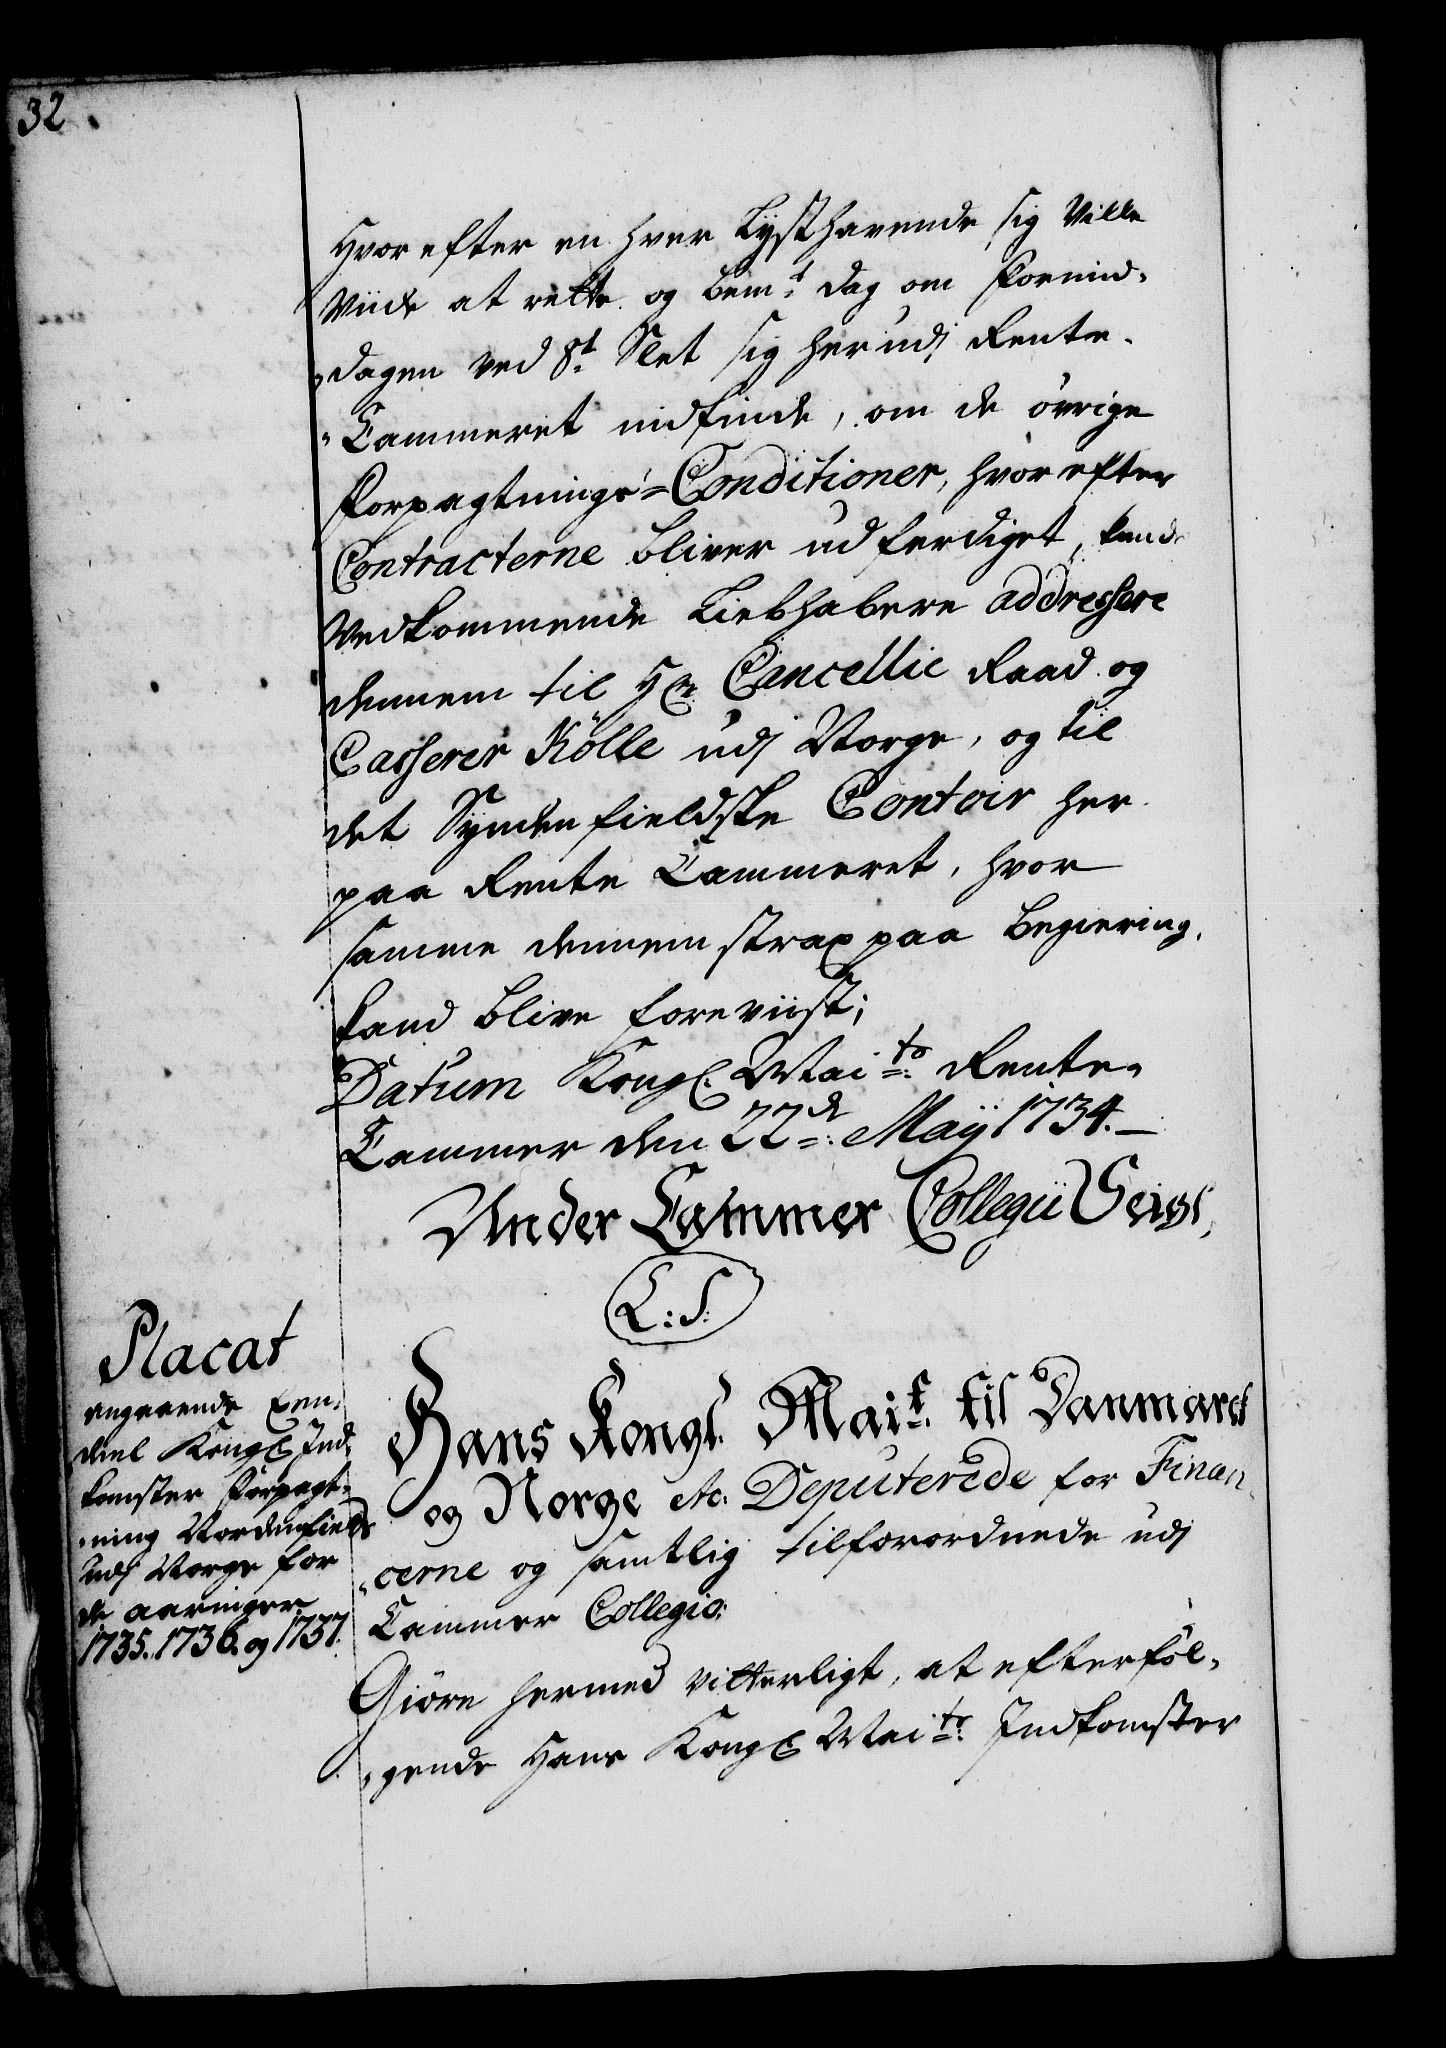 32
Hvorefter en hver Lysthavende sig Ville
Viide at rette og bem.t dag om formid-
dagen ved 8t Slet sig herudj Rente-
Cammeret indfinde, om de øvrige
Forpagtnings-Conditioner, hvorefter
Contracterne bliver udferdiget, kand
Vedkommende Liebhabere addressere
dennem til Hr. Cancellie Raad og
Casserer Kölle udj Norge, og til
det Syndenfieldske Contoir her
paa Rente Cammeret, hvor
samme dennem strax paa begiering,
kand blive foreviist;
Datum Kongl. Maits Rente-
Cammer den 22de Maÿ 1734.
Under Cammer Collegii Seigl,
L:S:
Placat
angaaende Een-
deel Kongl Ind-
komster Forpagt-
ning Nordenfields
udj Norge for
de aaringer
1735. 1736. og 1737.
Hans Kongl. Mait. til Danmarck
og Norge etc. Deputerede for Finan-
cerne og samtlig tilforordnede udj
Cammer Collegio:
Giöre hermed vitterligt, at efterföl-
gende Hans Kongl Maits Indkomster